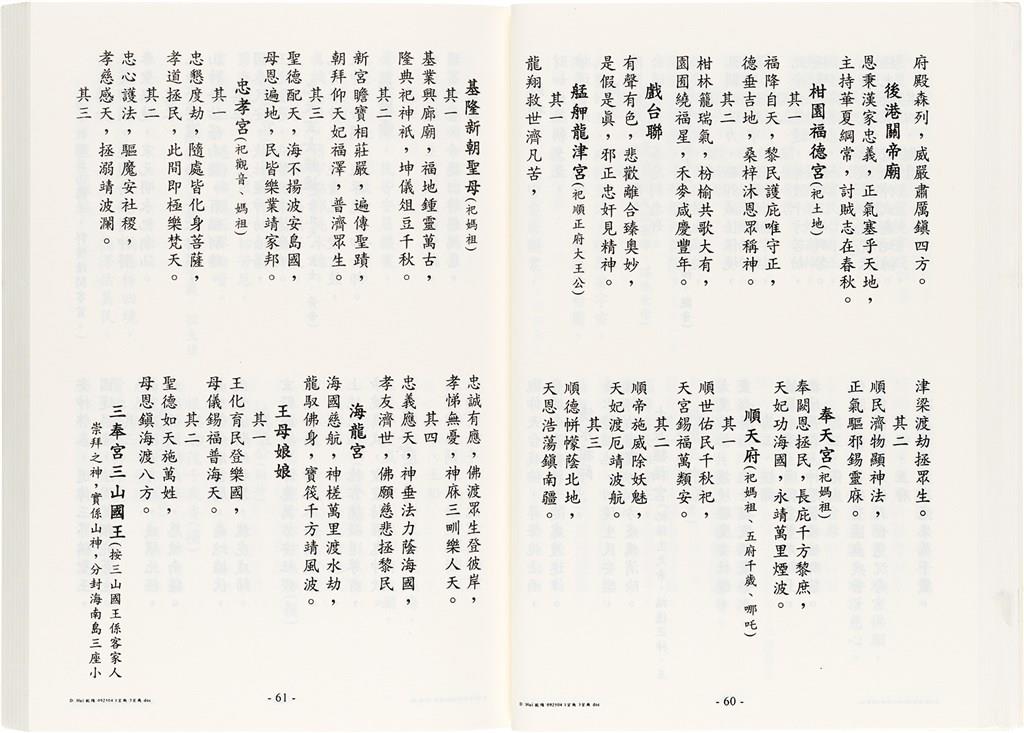 府殿森列，威嚴肅厲鎮四方。
後港關帝廟
恩秉漢家忠義，正氣塞乎天地，
主持華夏綱常，討賊志在春秋。
柑園福德宮(祀土地)
其一
福降自天，黎民護庇唯守正，
德垂吉地，桑梓沐恩眾稱神。
其二
柑林籠瑞氣，枌榆共歌大有，
園囿繞福星，禾麥咸慶豐年。
戲台聯
有聲有色，悲歡離合臻奧妙，
是假是眞，邪正忠奸見精神。
艋舺龍津宮(祀順正府大王公)
其一
龍翔救世濟凡苦，
津梁渡劫拯眾生。
其二
順民濟物顯神法，
正氣驅邪錫靈庥。
奉天宮(祀媽祖)
奉闕恩拯民，長庇千方黎庶，
天妃功海國，永靖萬里煙波。
順天府(祀媽祖、五府千歲、哪吒)
其一
順世佑民千秋祀，
天宮錫福萬類安。
其二
順帝施威除妖魅，
天妃渡厄靖波航。
其三
順德帡幪蔭北地，
天恩浩蕩鎮南疆。
- 60 -
基隆新朝聖母(祀媽祖)
其一
基業興廊廟，福地鍾靈萬古，
隆典祀神祇，坤儀俎豆千秋。
其二
新宮瞻寶相莊嚴，遍傳聖蹟，
朝拜仰天妃福澤，普濟眾生。
其三
聖德配天，海不揚波安島國，
母恩遍地，民皆樂業靖家邦。
忠孝宮(祀觀音、媽祖)
其一
忠懇度劫，隨處皆化身菩薩，
孝道拯民，此間即極樂梵天。
其二
忠心護法，驅魔安社稷，
孝慈感天，拯溺靖波瀾。
其三
忠誠有應，佛渡眾生登彼岸，
孝悌無憂，神庥三甽樂人天。
其四
忠義應天，神垂法力蔭海國，
孝友濟世，佛願慈悲拯黎民
海龍宮
海國慈航，神槎萬里渡水劫，
龍馭佛身，寶筏千方靖風波。
王母娘娘
其一
王化育民登樂國，
母儀錫福普海天。
其二
聖德如天施萬姓，
母恩鎮海渡八方。
三奉宮三山國王(按三山國王係客家人
崇拜之神，實係山神，分封海南島三座小
- 61 -